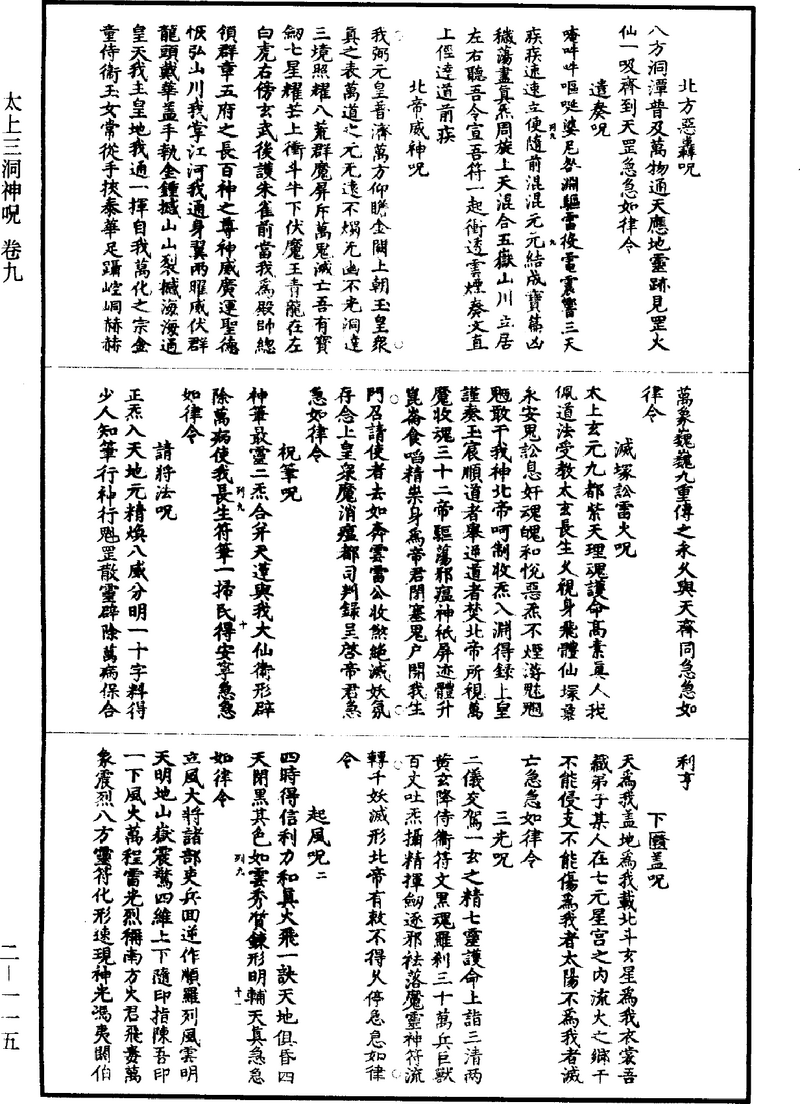 太上三洞神呪 卷九
二—一一五
北方惡轟呪
八方洞潭普及萬物通天應地靈跡見罡火
仙一吸齊到天罡急急如律令
遣奏呪
唵吽吽嘔㖿婆尼咎淵驅雷役電震響三天
疾疾速速立便隨前混混元元結成寶蓋凶
列九
九
穢蕩盡真炁周旋上天混合五嶽山川立居
左右聽吾令宣吾符一起衝透雲煙奏文直
上徑達道前疾
北帝威神呪
我弼元皇普濟萬方仰瞻金闕上朝玉皇衆
真之表萬道之元无遠不燭无幽不光洞達
三境照耀八荒群魔屏斥萬鬼滅亡吾有寶
劒七星耀芒上衝斗牛下伏魔王青龍在左
白虎右傍玄武後護朱雀前當我為殿帥總
領群章五府之長百神之尊神威廣運聖德
恢弘山川我掌江河我通身翼兩曜威伏群
龍頭戴華蓋手執金鍾撼山山裂撼海海通
皇天我主皇地我通一揮自我萬化之宗金
童侍衛玉女常從手挾泰華足躡崆峒赫赫
萬象巍巍九重傳之永久與天齊同急急如
律令
滅塚訟雷火呪
太上玄元九都紫天理魂護命高素真人我
佩道法受教太玄長生久視身飛體仙塚墓
永安鬼訟息奸魂魄和悅惡炁不煙游魅魍
魎敢干我神北帝呵制收炁入淵得錄上皇
謹奏玉宸順道者舉逆道者焚北帝所視萬
魔收魂三十二帝驅蕩邪瘟神祇屏迹體升
崑崙食㗖精祟身為帝君閉塞鬼户開我生
門召請使者去如奔雲雷公收煞絕滅妖氛
存念上皇衆魔消瘟都司判錄呈啓帝君急
急如律令
祝筆呪
神筆最靈二炁合并天蓬與我大仙衛形辟
除萬病使我長生符筆一掃民得安寧急急
列九
十
如律令
請將法呪
正炁入天地元精煥八威分明一十字料得
少人知筆行神行魁罡散靈辟除萬病保合
利亨
下䕃蓋呪
天為我蓋地為我載北斗玄星為我衣裳吾
藏弟子某人在七元星宮之内流火之鄉干
不能侵支不能傷為我者太陽不為我者滅
亡急急如律令
三光呪
二儀交駕一玄之精七靈護命上詣三清兩
黃玄降侍衛符文黑魂羅剎三十萬兵巨獸
百丈吐炁攝精揮劒逐邪祛落魔靈神符流
轉千妖滅形北帝有敕不得久停急急如律
令
起風呪二
四時得信利力和真火飛一訣天地俱昏四
天閉黑其色如雲秀質鍊形明輔天真急急
列九
十一
如律令
立風大將諸部吏兵回逆作順羅列風雲明
天明地山嶽震驚四維上下隨印指陳吾印
一下風火萬程雷光烈稱南方火君飛賫萬
象震烈八方靈符化形速現神光馮夷關伯